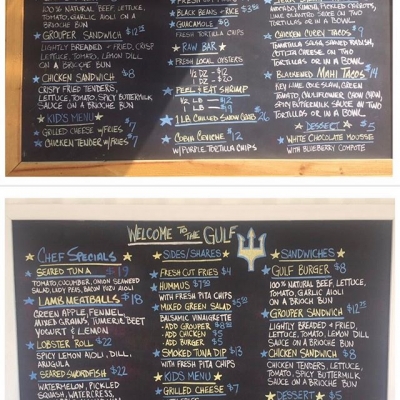 100% NATURAL BEEF, LETTUCE,
TOMATO, GARLIC AIOLI ON A
BRIOCHE BUN
GROUPER SANDWICH $12.95
LIGHTLY BREADED & FRIED, CRISP
LETTUCE, TOMATO, LEMON DILL
ON A BRIOCHE BUN
CHICKEN SANDWICH $8
CRISPY FRIED TENDERS,
LETTUCE, TOMATO, SPICY BUTTERMILK
SAUCE ON A BRIOCHE BUN
KID'S MENU
GRILLED CHEESE W/FRIES $7
CHICKEN TENDER W/FRIES $7
BLACK BEANS & RICE $3.50
GUACAMOLE $8
FRESH TORTILLA CHIPS
RAW BAR
FRESH LOCAL OYSTERS
1/2 DZ - $12
1 DZ - $20
PEEL & EAT SHRIMP
1/2 LB $12
1 LB $19
1 LB CHILLED SNOW CRAB $26
COBIA CEVICHE $12
W/PURPLE TORTILLA CHIPS
AVOCADO, RADISH, PICKLED CARROTS,
TORTILLAS OR IN A BOWL
CHICKEN CURRY TACOS $9
TOMATILLA SALSA, SHAVED RADISH,
COTIJA CHEESE ON TWO
TORTILLAS OR IN A BOWL
BLACKENED MAHI TACOS $14
KEY LIME COLE SLAW, GREEN
TOMATO CAULIFLOWER CHOW CHOW,
SPICY BUTTERMILK SAUCE ON TWO
TORTILLAS OR IN A BOWL
DESSERT $5
WHITE CHOCOLATE MOUSSE
WITH BLUEBERRY COMPOTE
WELCOME TO THE GULF
CHEF SPECIALS
SEARED TUNA $19
TOMATO, CUCUMBER, ONION SEAWEED
SALAD, LADY PEAS, BACON YUZU AIOLI
LAMB MEATBALLS $18
GREEN APPLE, FENNEL,
MIXED GRAINS, TUMERIC BEET
YOGURT & LEMON
LOBSTER ROLL $22
SPICY LEMON AIOLI, DILL,
ARUGULA
SEARED SWORDFISH $22
WATERMELON, PICKLED
SQUASH, WATERCRESS,
SIDES/SHARES
FRESH CUT FRIES $4
HUMMUS $7.50
WITH FRESH PITA CHIPS
MIXED GREEN SALAD
BALSAMIC VINAIGRETTE
- ADD GROUPER $8
- ADD CHICKEN $5
- ADD BURGER $5
SMOKED TUNA DIP $13
WITH FRESH PITA CHIPS
KID'S MENU
GRILLED CHEESE $7
SANDWICHES
GULF BURGER $8
100% NATURAL BEEF, LETTUCE,
TOMATO, GARLIC AIOLI
ON A BRIOCH BUN
GROUPER SANDWICH $12.95
LIGHTLY BREADED & FRIED,
LETTUCE, TOMATO, LEMON DILL
SAUCE ON A BRIOCHE BUN
CHICKEN SANDWICH $8
CHICKEN TENDERS, LETTUCE,
TOMATO, SPICY BUTTERMILK
SAUCE ON A BRIOCHE BUN
DESSERT $5